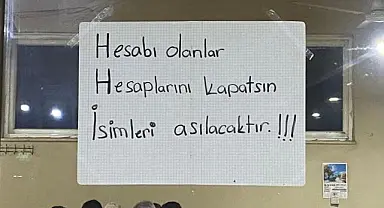 Hesabı olanlar
Hesaplarını kapatsın
İsimleri asılacaktır.!!!